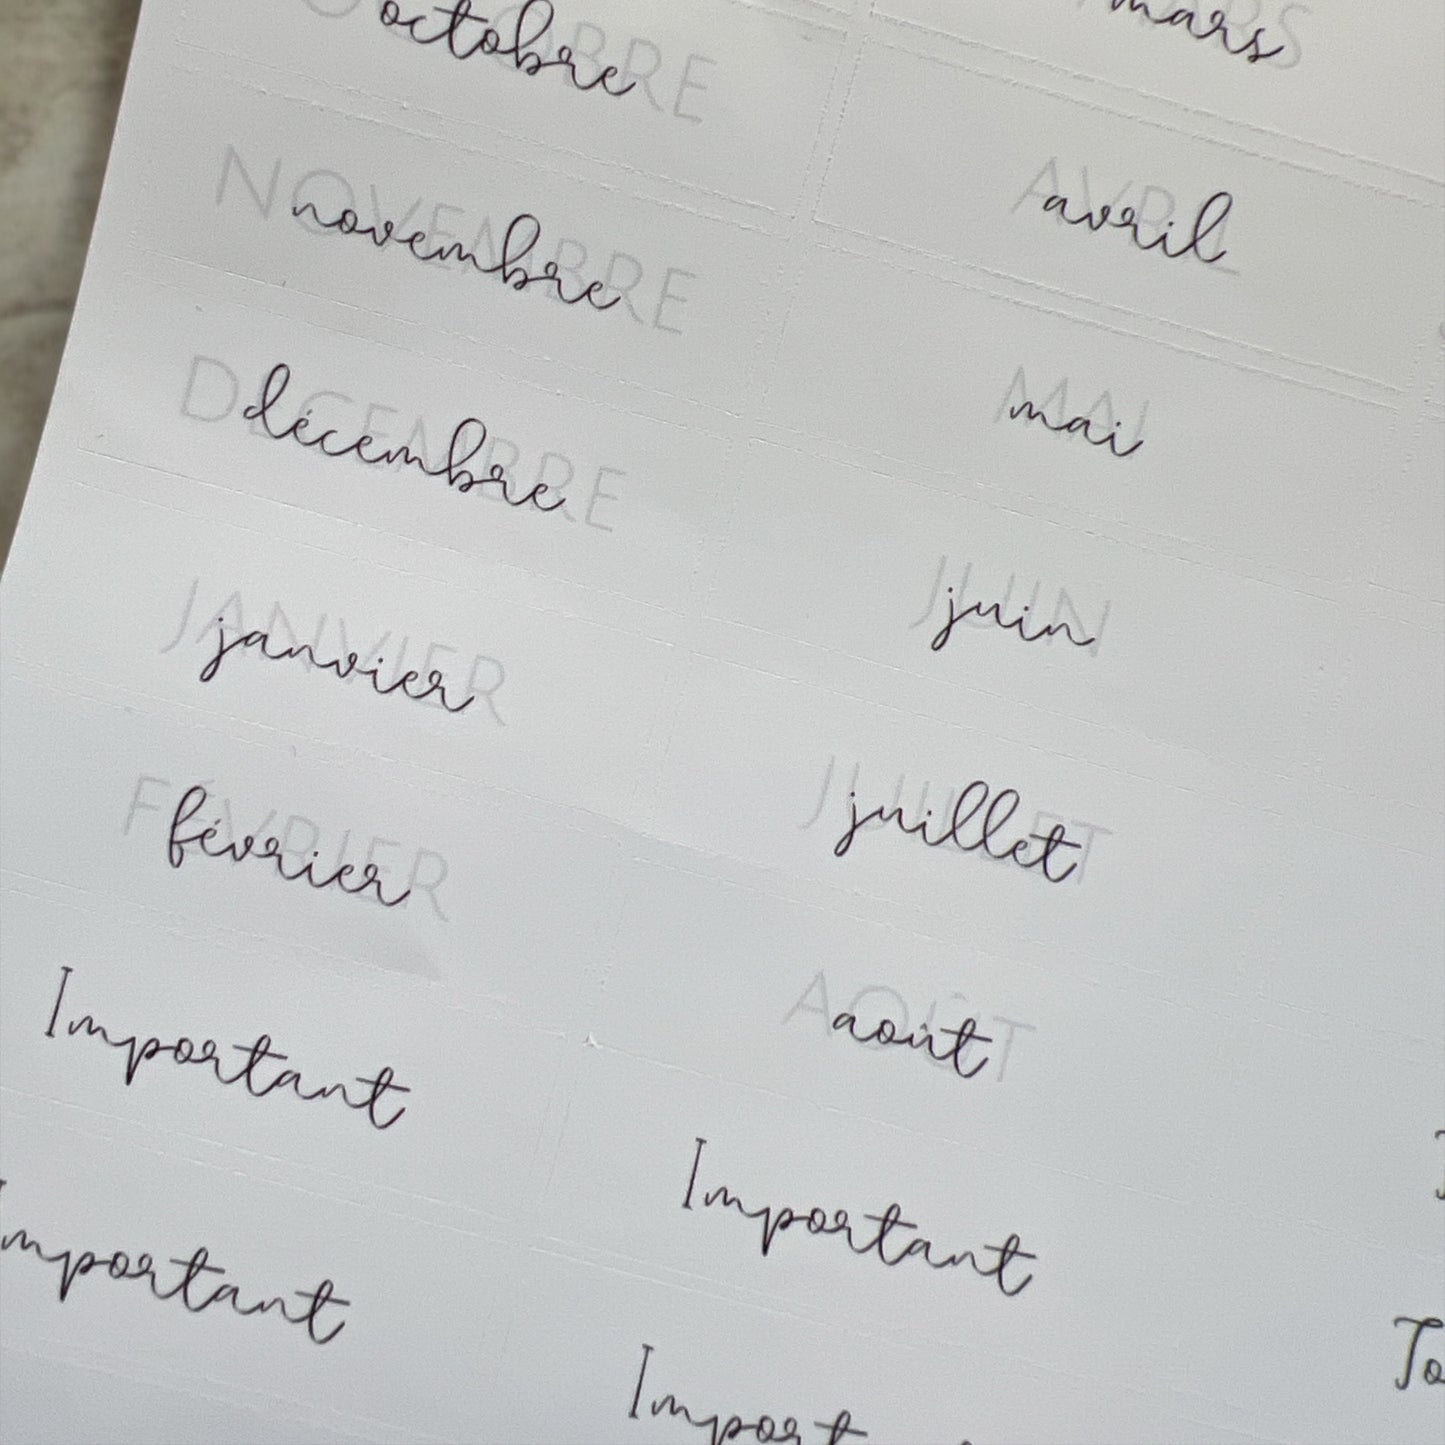 OCTOBRE
octobre
NOVEMBRE
novembre
DÉCEMBRE
décembre
JANVIER
janvier
FÉVRIER
février
Important
Important
MARS
mars
AVRIL
avril
MAI
mai
JUIN
juin
JUILLET
juillet
AOÛT
août
Important
Important
To